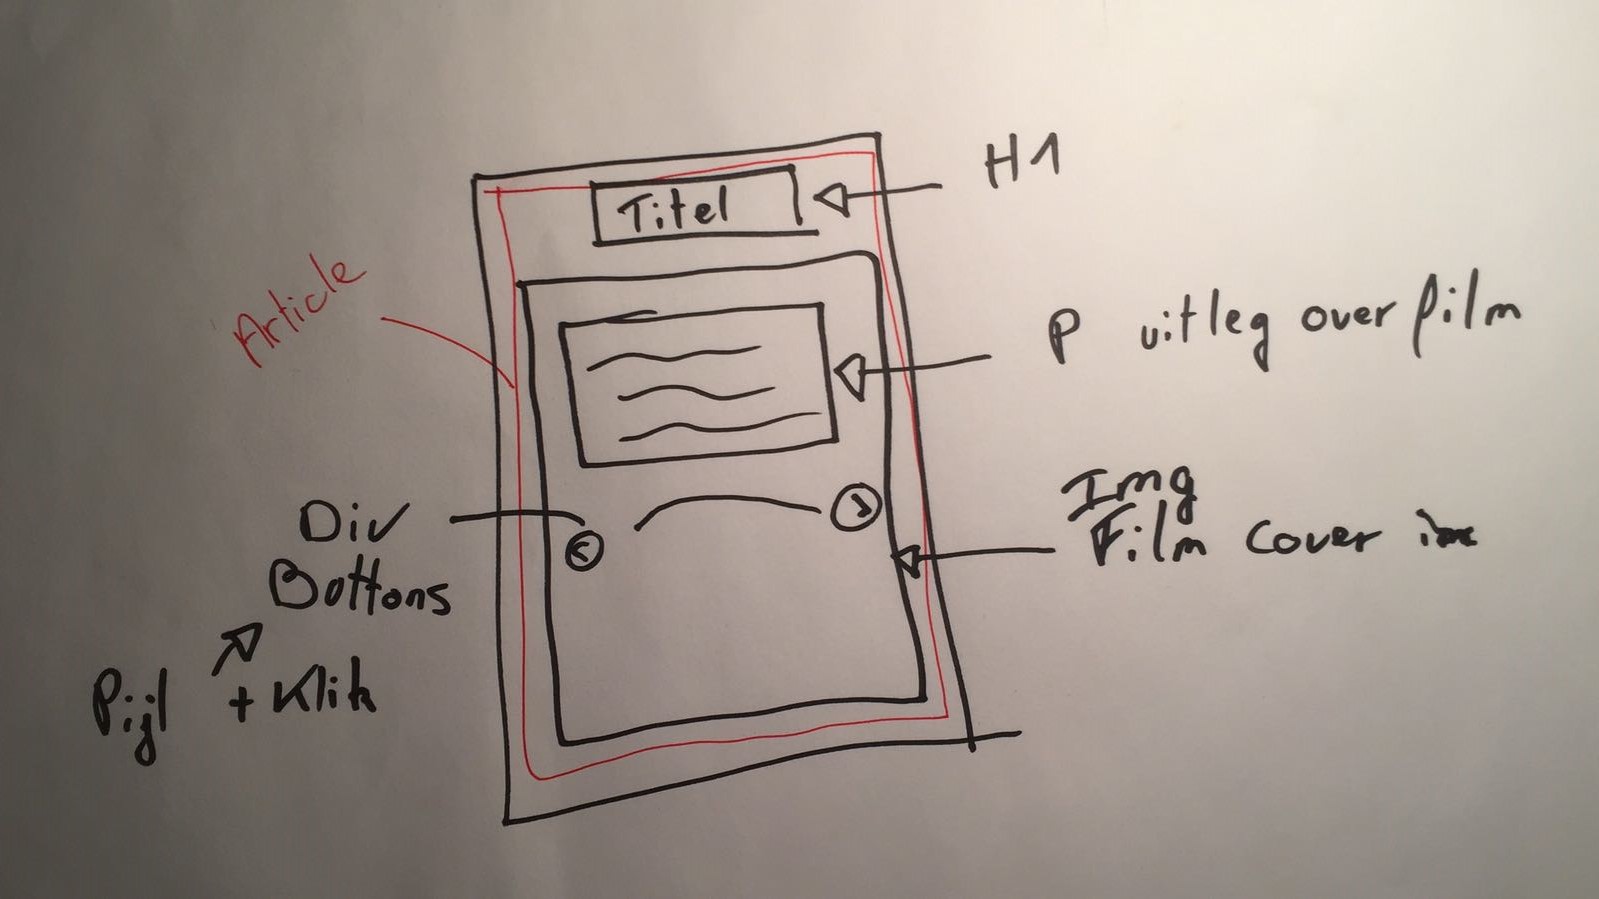 H1
Titel
Article
P uitleg over film
Img
Film cover
Div
Buttons
Pijl + Klik